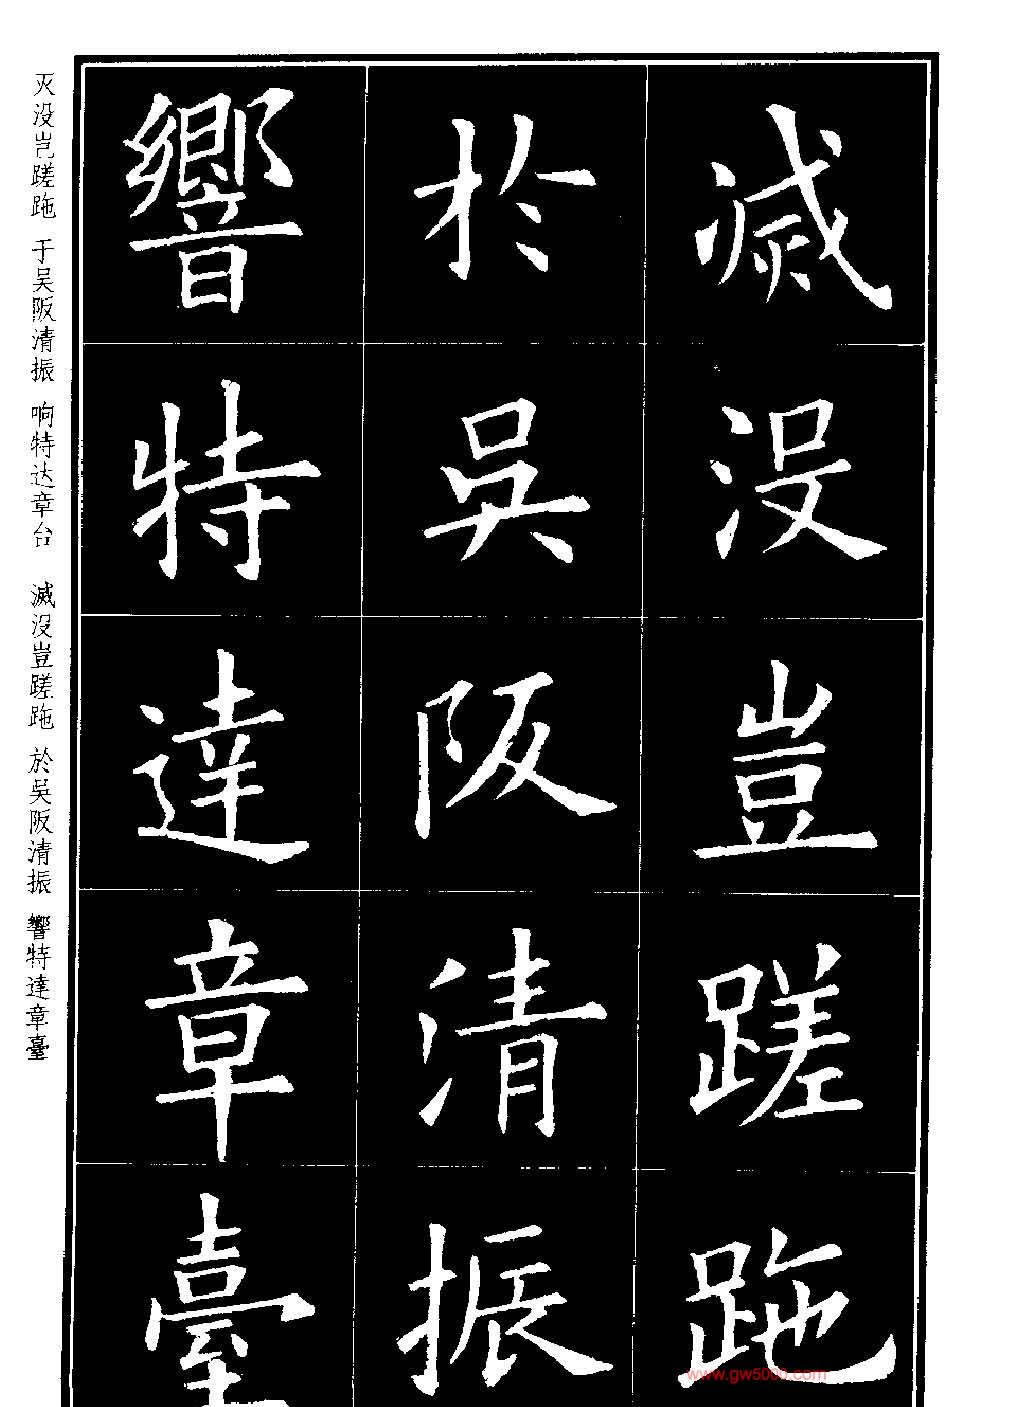 滅没豈蹉跎
於吳阪清振
響特達章臺
灭没岂蹉跎 于吴阪清振 响特达章台 滅没豈蹉跎 於吳阪清振 響特達章臺
www.gw5000.com